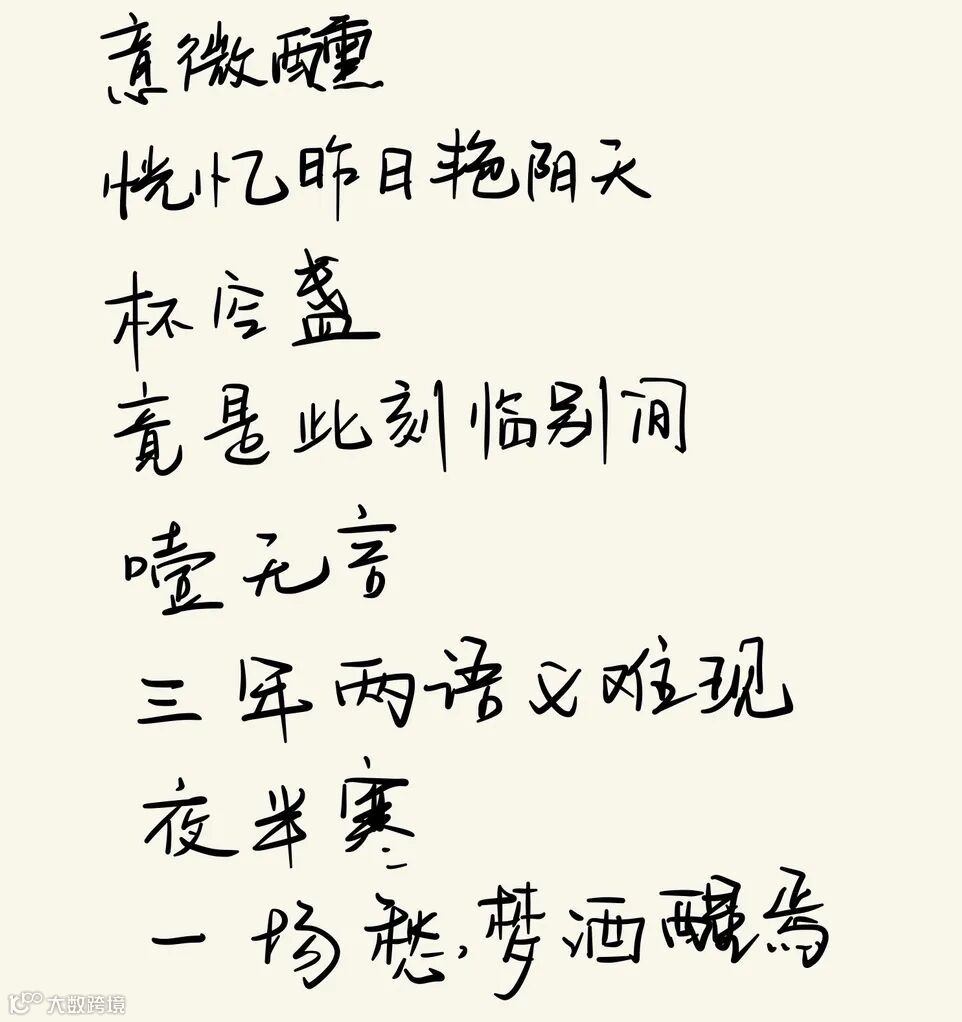 意微醺
恍忆昨日艳阳天
杯空盏
竟是此刻临别间
噎无音
三年两语义难现
夜半寒
一场愁,梦酒醒焉
大数跨境